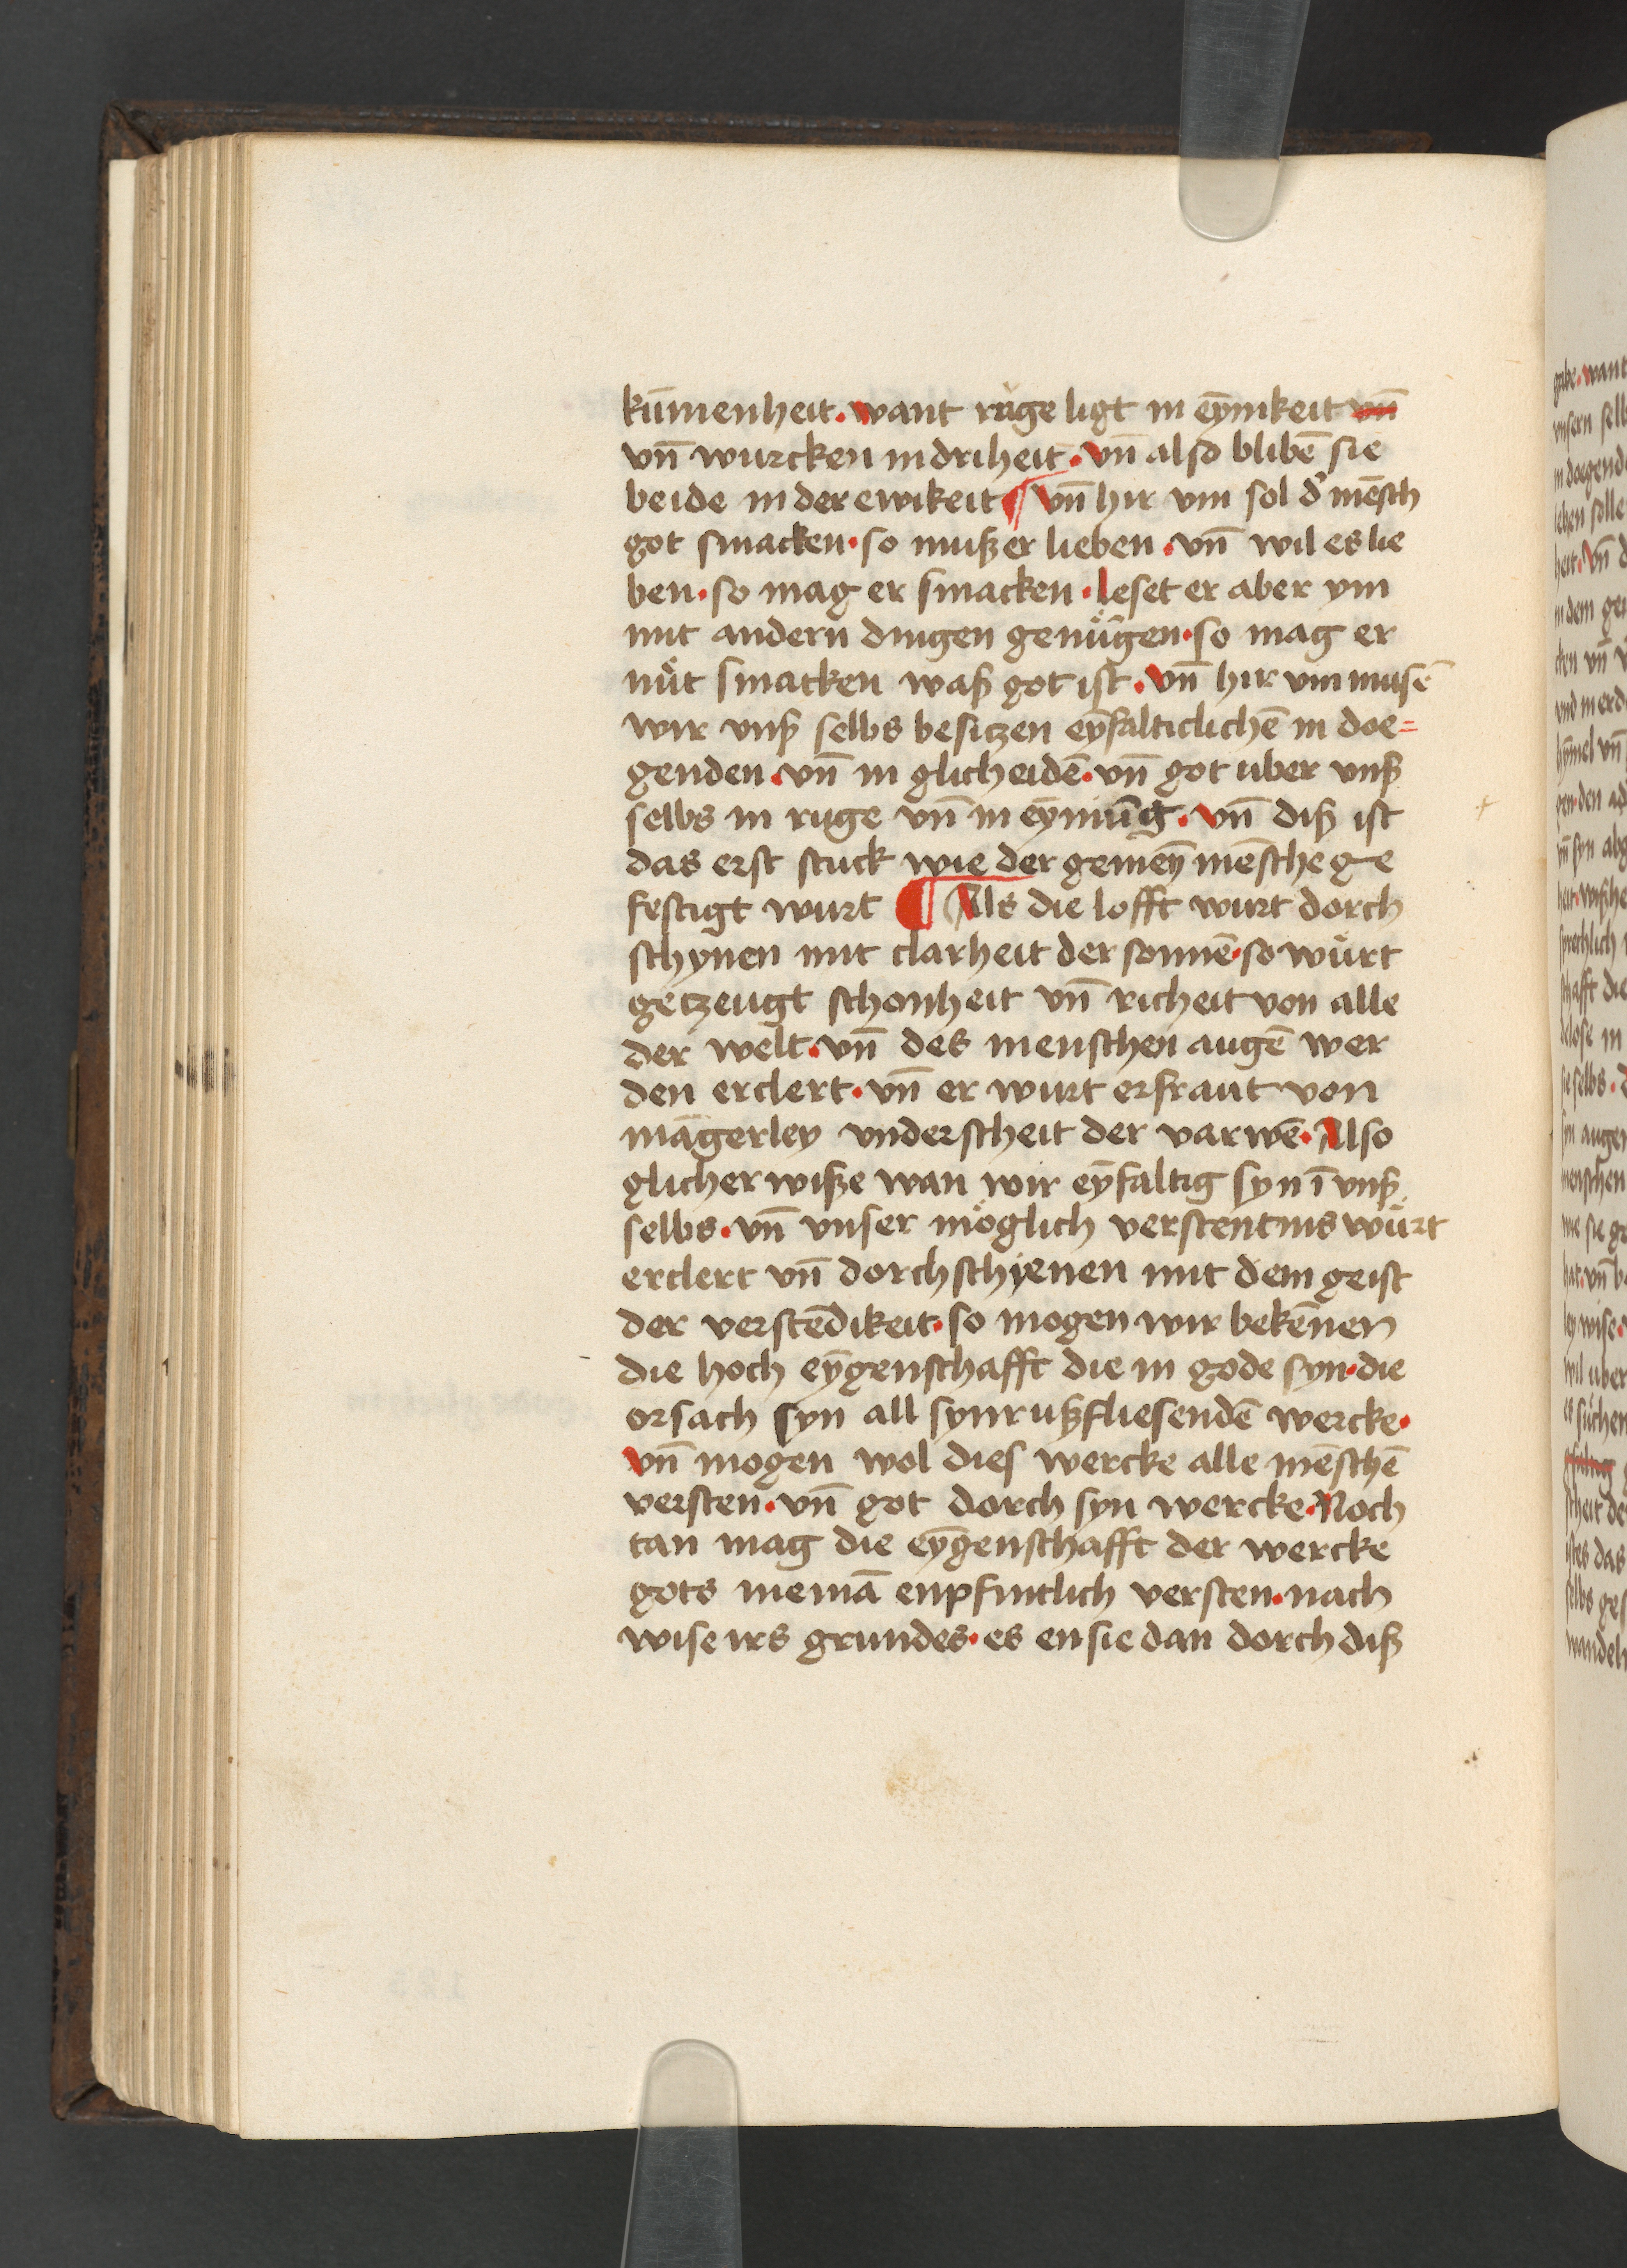 kūmenheit · want rüge ligt in eȳnikeit vn̄
vn̄ wurcken in driheit · vn̄ also blibē sie
beide in der ewikeit ¶ vn̄ hir vm sol d' mēsch
got smacken · so muß er lieben · vn̄ wil es lie
ben · so mag er smacken · leset er aber ym
mit andern dingen genügen · so mag er
nüt smacken waß got ist · vn̄ hir vm musē
wir vnß selbs besitzen eȳfalticlichē in doe=
genden · vn̄ in glicheidē · vn̄ got uber vnß
selbs in ruge vn̄ in eȳnūg · vn̄ diß ist
das erst stuck wie der gemeȳ mēsche ge
festigt wurt ¶ Als die lofft wurt dorch
schynen mit clarheit der sonnē · so würt
getzeugt schonheit vn̄ richeit von alle
der welt · vn̄ des menschen augē wer
den erclert · vn̄ er wurt erfraut von
māgerley vnderscheit der varwē · Also
glicher wiße wan wir eȳfaltig syn ī vnß
selbs · vn̄ vnser möglich verstentnis würt
erclert vn̄ dorchschyenen mit dem geist
der verstēdikeit · so mogen wir bekēnen
die hoch eȳgenschafft die in gode syn · die
orsach syn all synr ußfliesendē wercke ·
vn̄ mogen wol dies wercke alle mēschē
versten · vn̄ got dorch syn wercke · Noch
tan mag die eȳgenschafft der wercke
gots niemā enpfintlich versten · nach
wise irs grundes · es en sie dan dorch diß